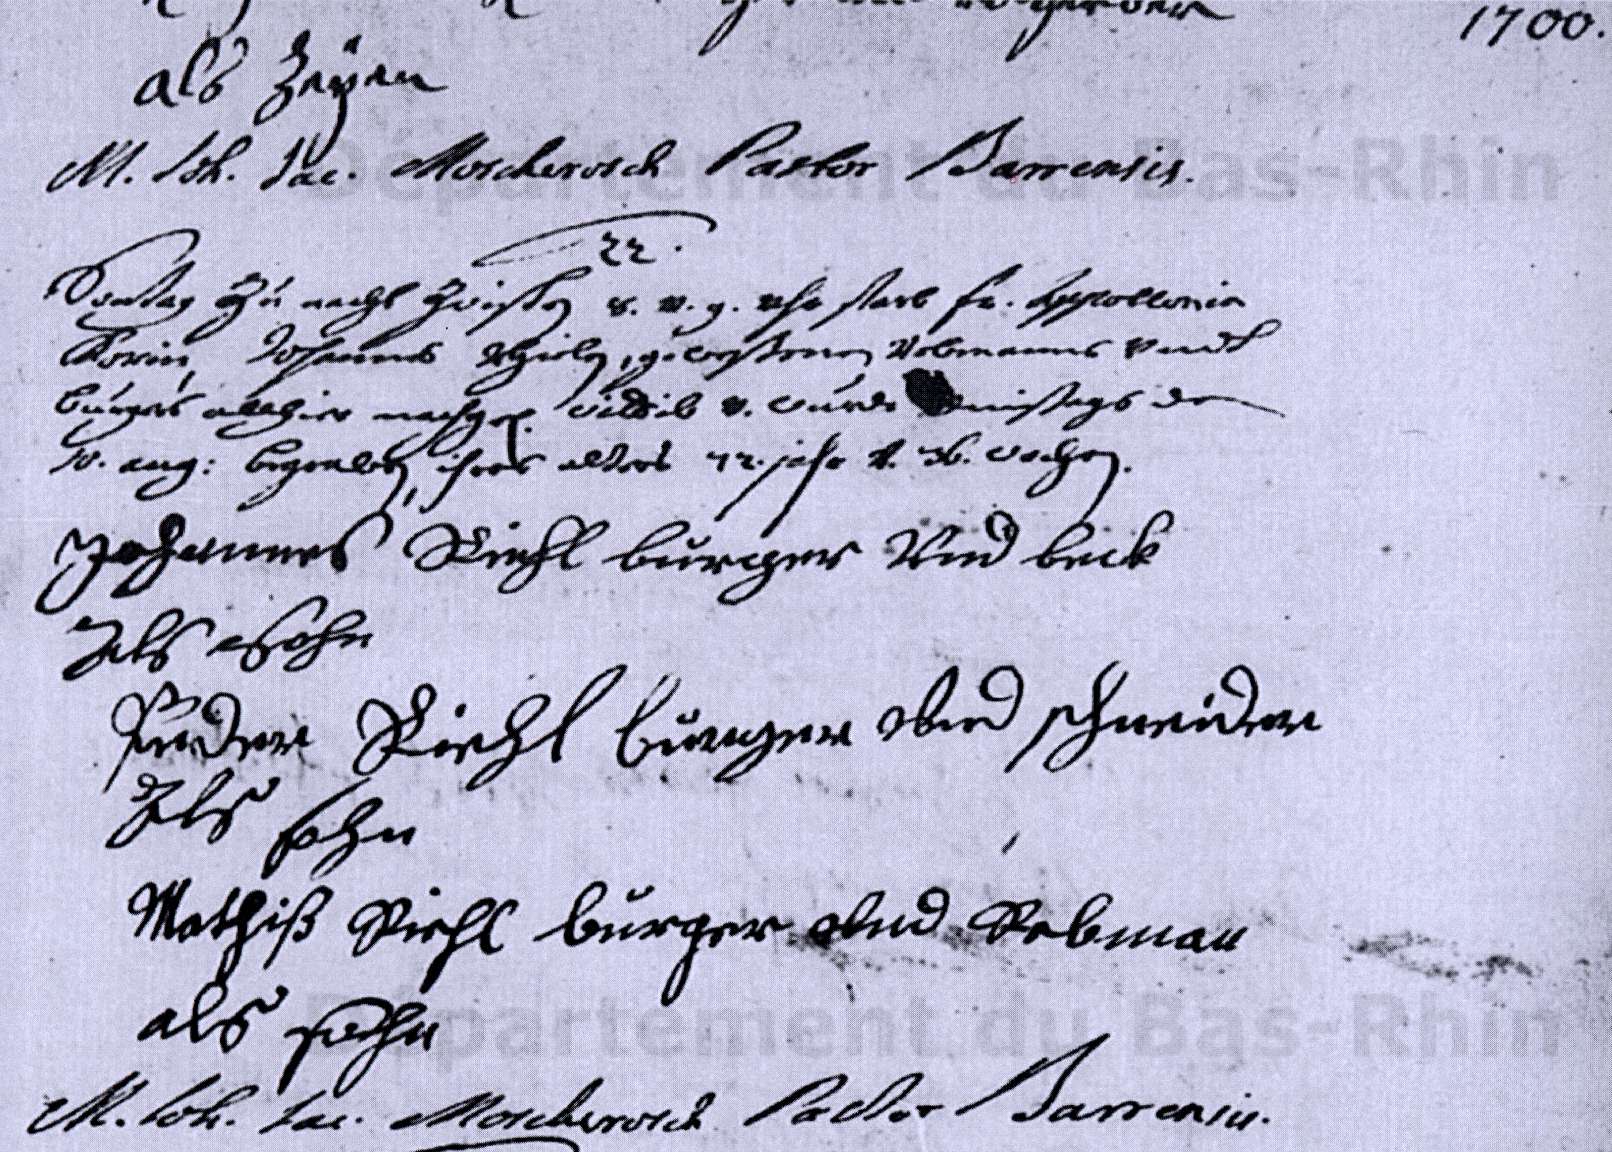 1700.
als Zeugen
M. Joh. Jac. Moscherosch Pastor Barrensis.
22.
Sontag zu nacht zwischen 8. v. 9. uhr starb fr. Appollonia
Johannes gewesenen Rebmanns vndt
burgers allhier v. wurde Dinstags den
10. aug: begraben, ihres alters 72. jahr v. 36. wochen.
Johannes Riehl burger Vnd beck
Als Sohn
Riehl burger Vnd schneider
Als sohn
Mathiß Riehl burger Vnd Rebman
als sohn
M. Joh. Jac. Moscherosch Pastor Barrensis.
Département du Bas-Rhin
Département du Bas-Rhin